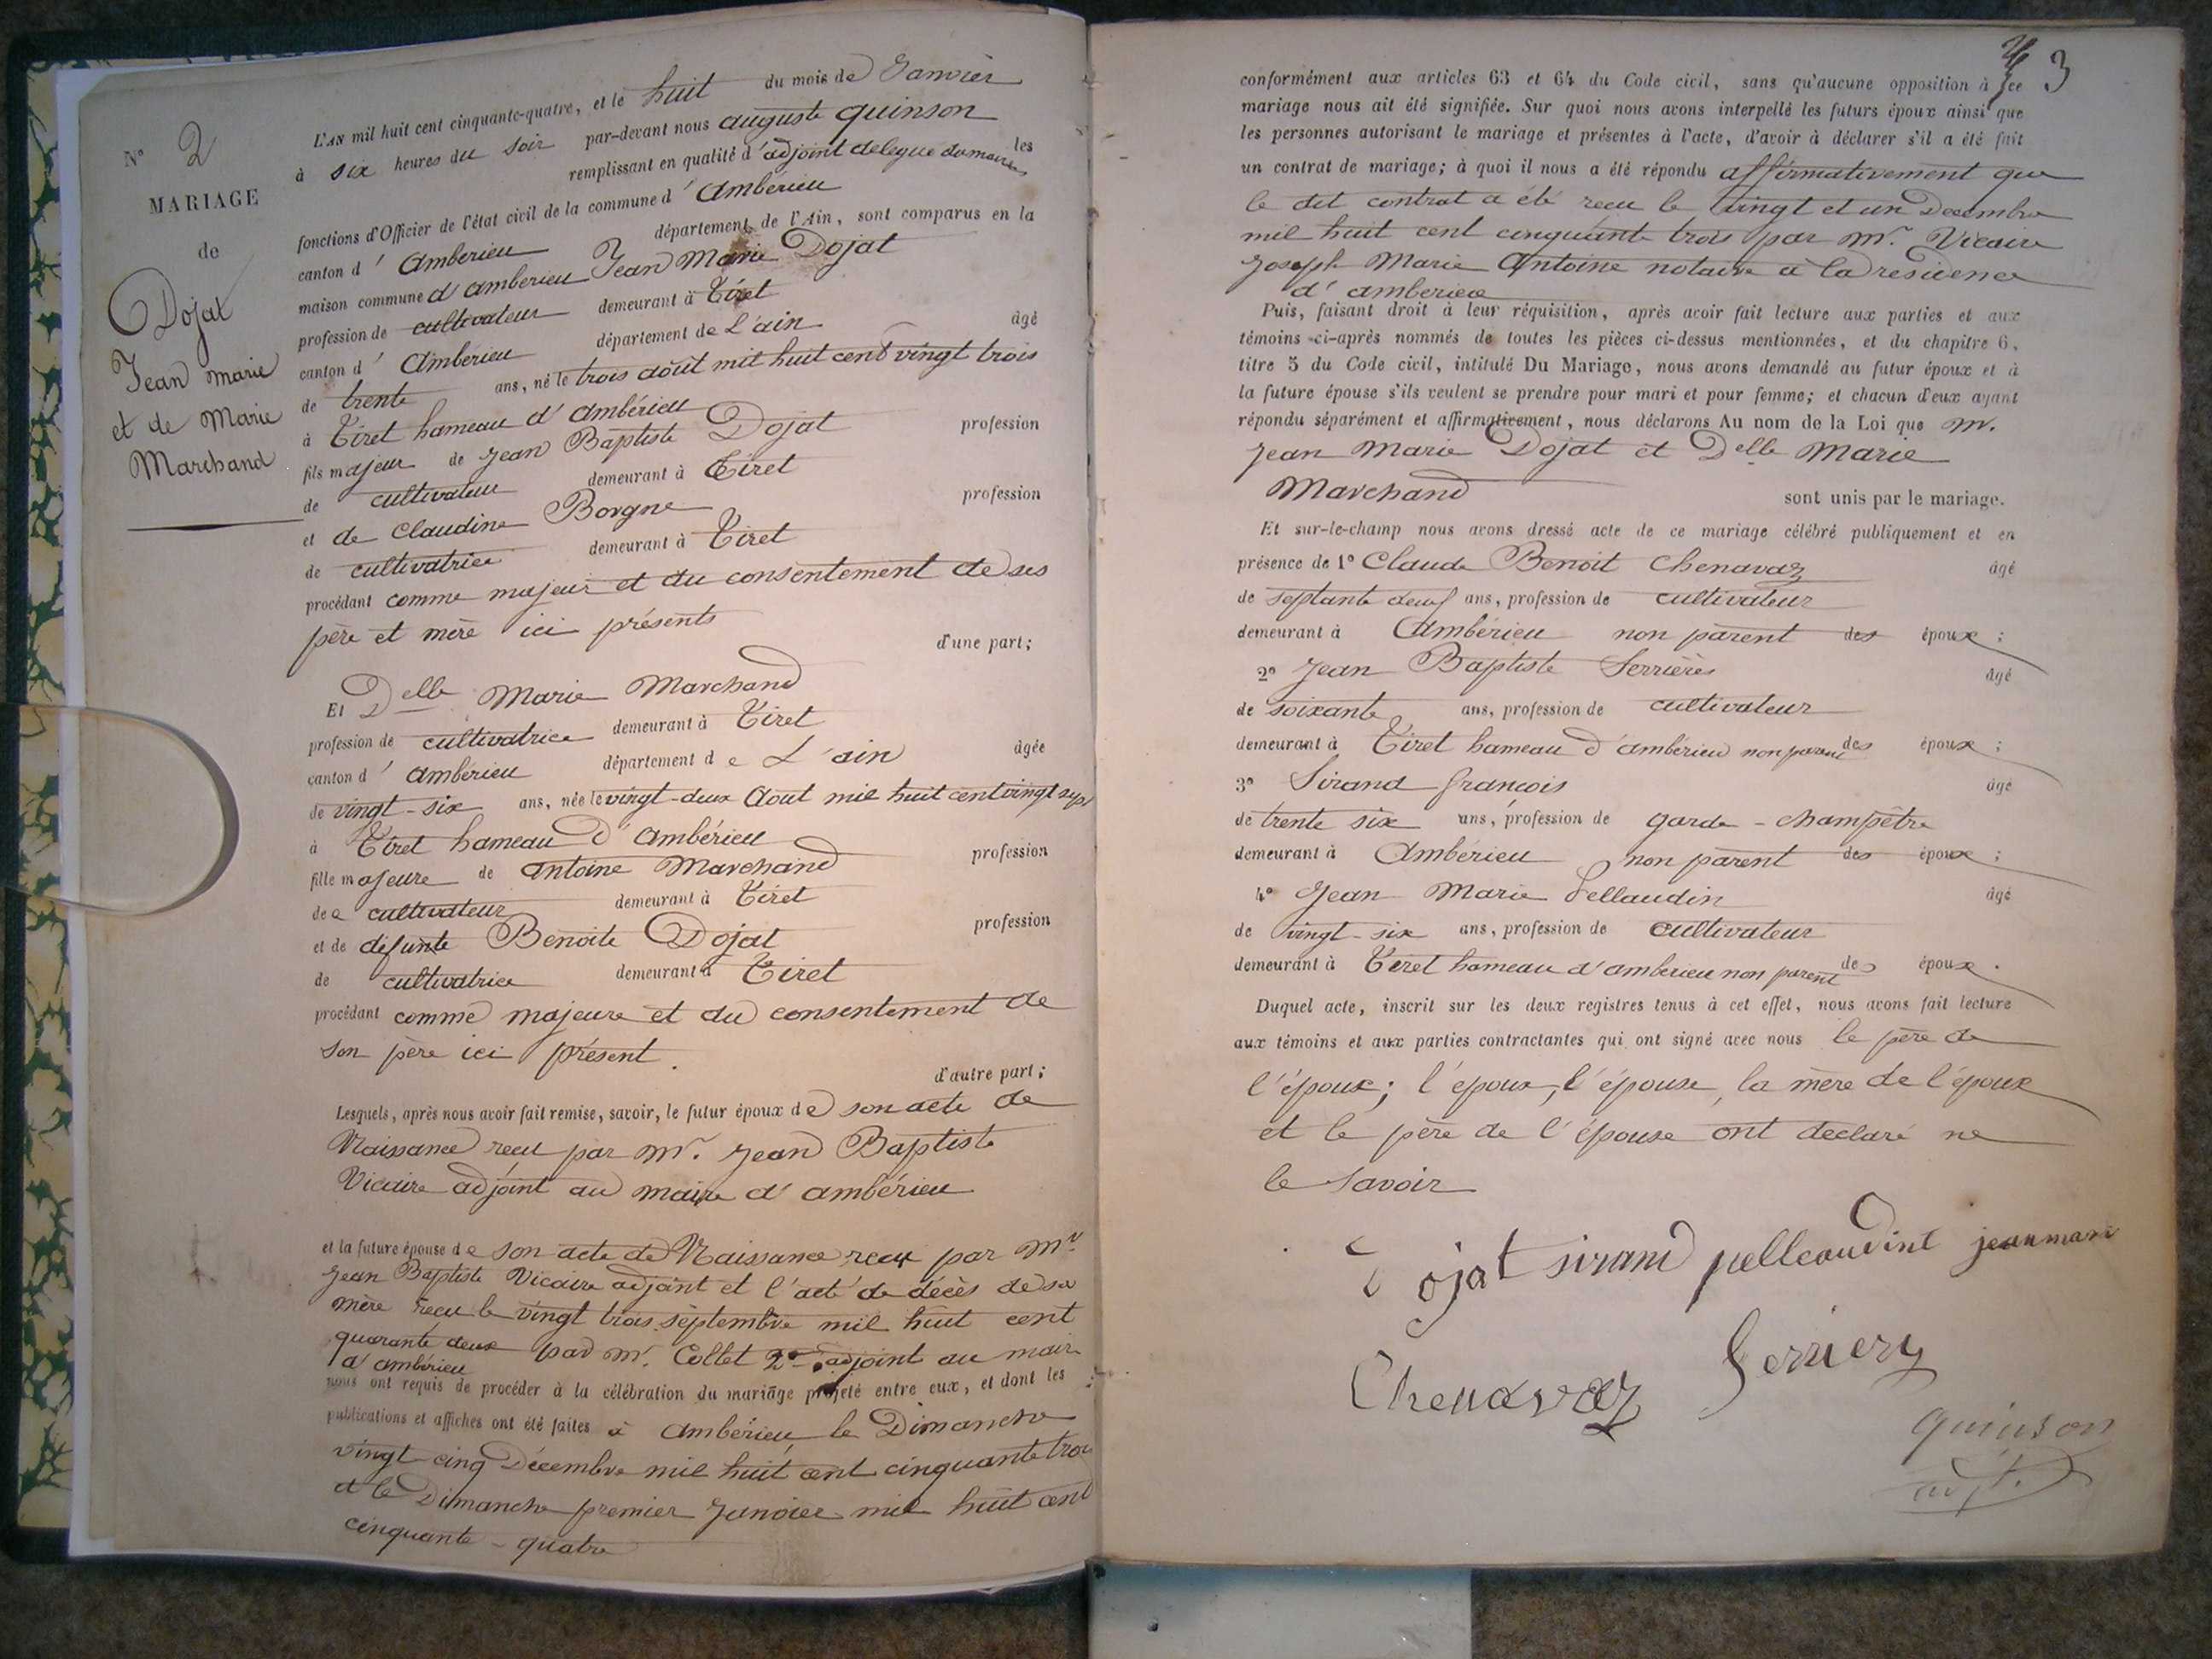 N° 2
MARIAGE
de
Dojat
Jean marie
et de Marie
Marchand
L'AN mil huit cent cinquante-quatre, et le huit du mois de Janvier
à six heures du soir par-devant nous auguste quinson
remplissant en qualité d'adjoint delegue du maire les
fonctions d'Officier de l'état civil de la commune d' Ambérieu
canton d' Amberieu département de l'Ain, sont comparus en la
maison commune d'amberieu Jean Marie Dojat
profession de cultivateur demeurant à Tiret
canton d' Amberieu département de L'ain âgé
de trente ans, né le trois août mil huit cent vingt trois
à Tiret hameau d'ambérieu
fils majeur de Jean Baptiste Dojat profession
de cultivateur demeurant à Tiret
et de Claudine Borgne profession
de cultivatrice demeurant à Tiret
procédant comme majeur et du consentement de ses
père et mère ici présents
d'une part;
Et Delle Marie Marchand
profession de cultivatrice demeurant à Tiret
canton d' ambérieu département de L'ain âgée
de vingt-six ans, née le vingt-deux Aout mil huit cent vingt sept
à Tiret hameau d'Ambérieu
fille majeure de antoine Marchand profession
de cultivateur demeurant à Tiret
et de défunte Benoite Dojat profession
de cultivatrice demeurant à Tiret
procédant comme majeure et du consentement de
son père ici présent.
d'autre part;
Lesquels, après nous avoir fait remise, savoir, le futur époux de son acte de
Naissance recu par mr. Jean Baptiste
Vicaire adjoint au maire d'ambérieu
et la future épouse de son acte de Naissance recu par Mr.
Jean Baptiste Vicaire adjoint et l'acte de décès de sa
mère recu le vingt trois septembre mil huit cent
quarante deux par mr. Collet 2me adjoint au maire
d'ambérieu
nous ont requis de procéder à la célébration du mariage projeté entre eux, et dont les
publications et affiches ont été faites à Ambérieu le Dimanche
vingt cinq Décembre mil huit cent cinquante trois
et le Dimanche premier Janvier mil huit cent
cinquante-quatre
3
conformément aux articles 63 et 64 du Code civil, sans qu'aucune opposition à ce
mariage nous ait été signifiée. Sur quoi nous avons interpellé les futurs époux ainsi que
les personnes autorisant le mariage et présentes à l'acte, d'avoir à déclarer s'il a été fait
un contrat de mariage; à quoi il nous a été répondu affirmativement que
le dit contrat a été recu le vingt et un Decembre
mil huit cent cinquante trois par mr. Vicaire
Joseph Marie Antoine notaire à la residence
d'amberieu
Puis, faisant droit à leur réquisition, après avoir fait lecture aux parties et aux
témoins ci-après nommés de toutes les pièces ci-dessus mentionnées, et du chapitre 6,
titre 5 du Code civil, intitulé Du Mariage, nous avons demandé au futur époux et à
la future épouse s'ils veulent se prendre pour mari et pour femme; et chacun d'eux ayant
répondu séparément et affirmativement, nous déclarons Au nom de la Loi que mr.
Jean Marie Dojat et Delle Marie
Marchand sont unis par le mariage.
Et sur-le-champ nous avons dressé acte de ce mariage célébré publiquement et en
présence de 1° Claude Benoit Chenavaz âgé
de septante deux ans, profession de cultivateur
demeurant à Ambérieu non parent des époux;
2° Jean Baptiste Serrières âgé
de soixante ans, profession de cultivateur
demeurant à Tiret hameau d'ambérieu non parent des époux;
3° Sirand françois âgé
de trente six ans, profession de garde-champêtre
demeurant à Ambérieu non parent des époux;
4° Jean Marie Pellaudin âgé
de vingt-six ans, profession de cultivateur
demeurant à Tiret hameau d'amberieu non parent des époux.
Duquel acte, inscrit sur les deux registres tenus à cet effet, nous avons fait lecture
aux témoins et aux parties contractantes qui ont signé avec nous le père de
l'époux; l'époux, l'épouse, la mère de l'époux
et le père de l'épouse ont declaré ne
le savoir
Dojat sirand pelleaudint jean mari
Chenavaz Serriery
quinson
adjt.